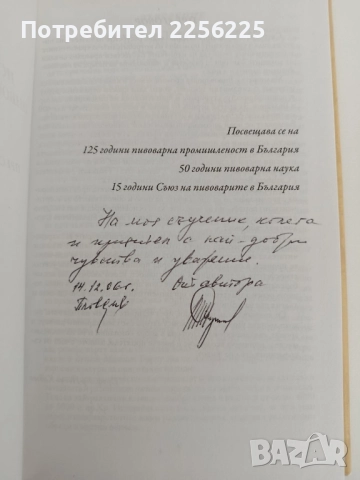 Потребител 2256236
Посвещава се на
125 години пивоварна промишленост в България
50 години пивоварна наука
15 години Съюз на пивоварите в България
На моя съученик, колега
и приятел с най-добри
чувства и уважение.
14.12.06 г. От автора
Пловдив
BAZAR